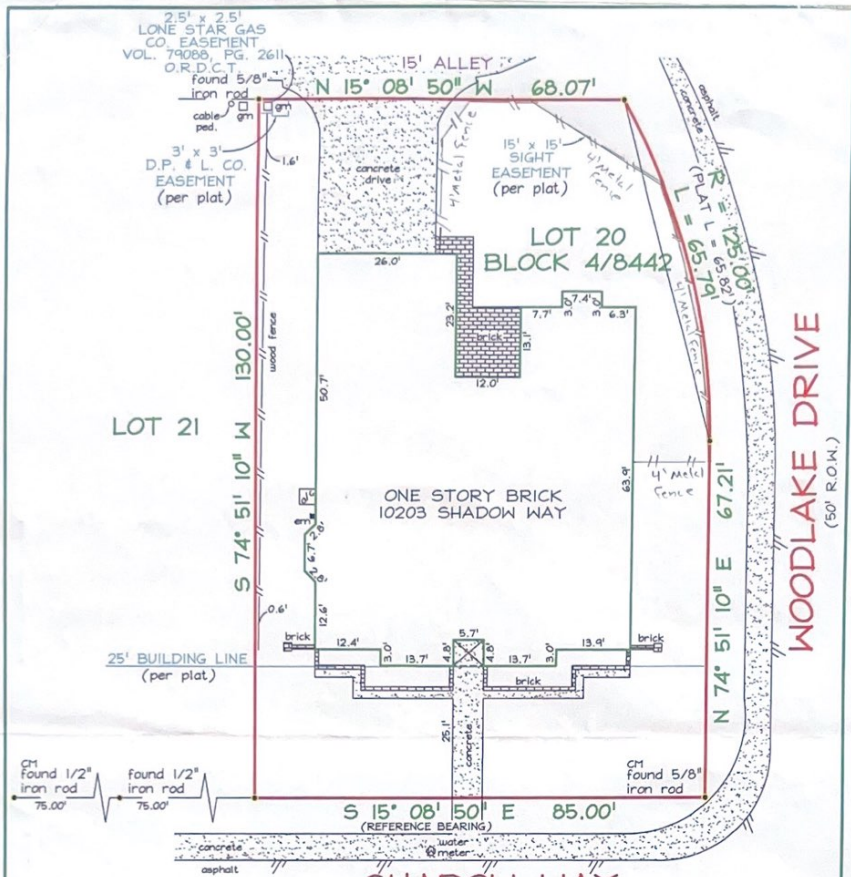 2.5' x 2.5'
LONE STAR GAS
CO. EASEMENT
VOL. 79088, PG. 2611
O.R.D.C.T.
found 5/8"
iron rod
cable
ped.
gm
gm
3' x 3'
D.P. & L. CO.
EASEMENT
(per plat)
1.6'
15' ALLEY
N 15° 08' 50" W 68.07'
concrete
drive
4' Metal Fence
15' x 15'
SIGHT
EASEMENT
(per plat)
4' Metal
Fence
asphalt
concrete
R = 125.00'
L = 65.79'
(PLAT L = 65.82')
4' Metal Fence
LOT 20
BLOCK 4/8442
26.0'
23.2'
brick
13.1'
12.0'
7.7'
3.0'
7.4'
3.0'
6.3'
wood fence
S 74° 51' 10" W 130.00'
50.7'
LOT 21
ONE STORY BRICK
10203 SHADOW WAY
63.9'
4' Metal
Fence
N 74° 51' 10" E 67.21'
WOODLAKE DRIVE
(50' R.O.W.)
6.7'
12.6'
0.6'
brick
12.4'
3.0'
13.7'
4.8'
5.7'
4.8'
13.7'
3.0'
13.9'
brick
25' BUILDING LINE
(per plat)
brick
25.1'
concrete
CM
found 1/2"
iron rod
75.00'
found 1/2"
iron rod
75.00'
CM
found 5/8"
iron rod
S 15° 08' 50" E 85.00'
(REFERENCE BEARING)
concrete
water
meter
asphalt
SHADOW WAY